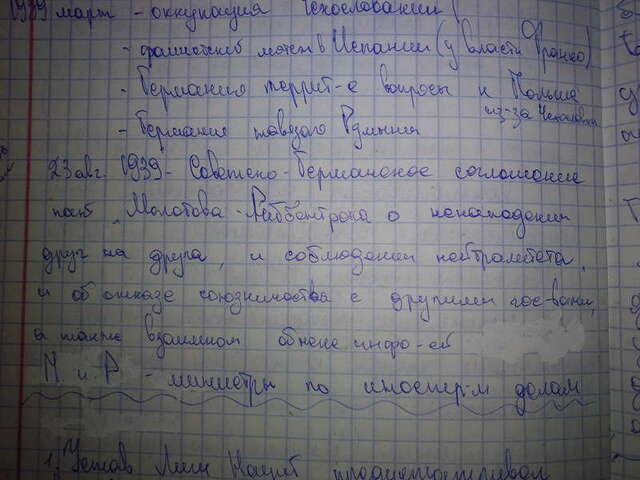 1939 март - оккупация Чехословакии
- фашистский мятеж в Испании (у власти Франко)
- Германия террит-е вопросы к Польше
из-за Чехословак
- Германия Румыния
23 авг. 1939 - Советско-Германское соглашение
пакт Молотова-Риббентропа о ненападении
друг на друга, и соблюдении нейтралитета,
и об отказе союзничества с другими гос-вами,
а также взаимном обмене инфор-ей
М и Р - министры по иностр-м делам
1. Устав Лиги Наций предусматривал